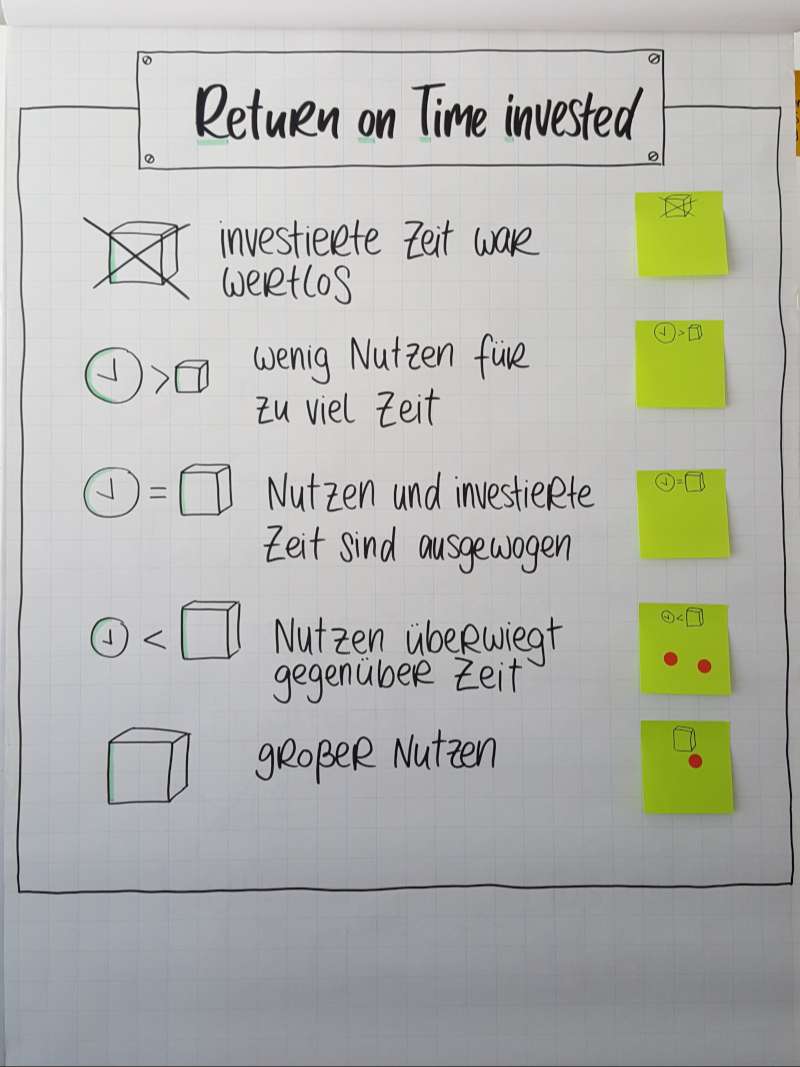 Return on Time invested
investierte Zeit war
wertlos
> wenig Nutzen für
zu viel Zeit
= Nutzen und investierte
Zeit sind ausgewogen
< Nutzen überwiegt
gegenüber Zeit
großer Nutzen
>
=
<